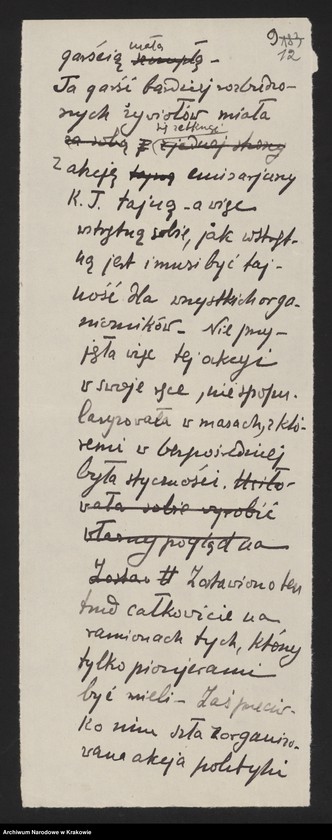 9
12
mała
garścią szczupłą -
Ta garść bardziej rozbudzo-
nych żywiołów miała
się zetknąć
za sobą z jednej strony
z akcją tajną emisarjuszy
K. T. tajną - a więc
wstrętną sobie, jak wstręt-
ną jest i musi być taj-
ność dla wszystkich orga-
niczników - Nie przy-
jęła więc tej akcyi
w swoje ręce, nie spopu-
laryzowała w masach, z któ-
remi w bezpośredniej
była styczności. Usiło-
wała sobie wyrobić
własny pogląd na
Zostaw # Zostawiono ten
trud całkowicie na
ramionach tych, którzy
tylko pionjerami
być mieli - Zaś przeciw-
ko nim szła zorganizo-
wana akcja polityki
Archiwum Narodowe w Krakowie